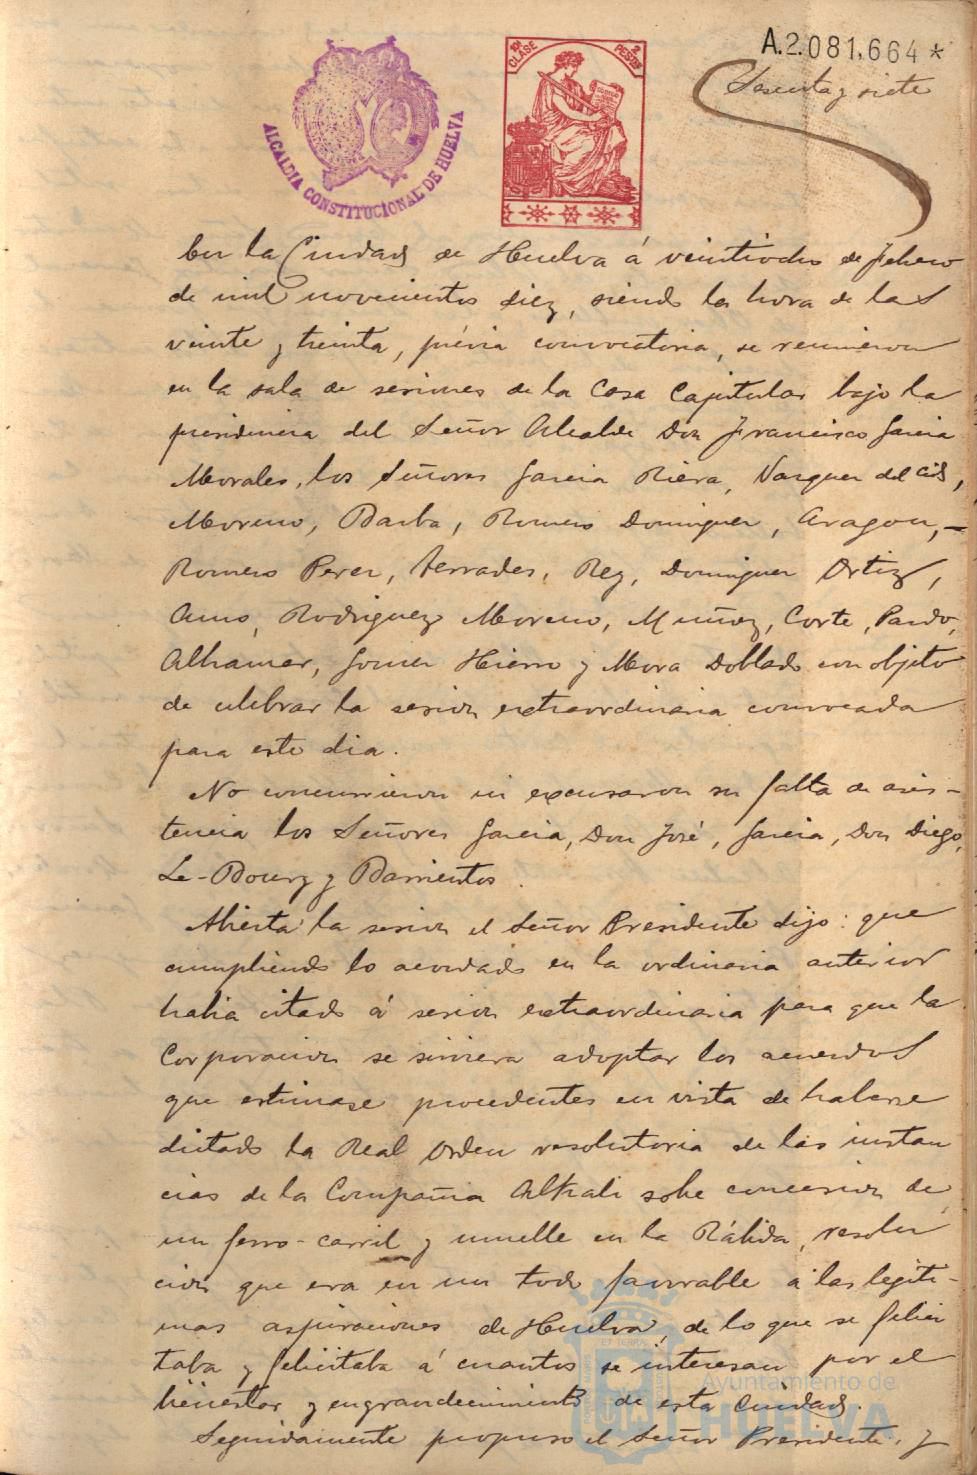 A.2.081,664*
Sesenta y siete
ALCALDIA CONSTITUCIONAL DE HUELVA
10ª CLASE
2 PESETAS
En la Ciudad de Huelva á veintiocho de Febrero
de mil novecientos diez, siendo la hora de las
veinte y treinta, prévia convocatoria, se reunieron
en la sala de sesiones de la Casa Capitular bajo la
presidencia del Señor Alcalde Don Francisco Garcia
Morales, los Señores Garcia Riera, Vazquez del Cid,
Moreno, Barba, Romero Dominguez, Aragon,-
Romero Perez, Terrades, Rey, Dominguez Ortiz,
Rodriguez Moreno, Muñoz, Corte, Pardo,
Alhamar, Gomez Hierro y Mora Doblado con objeto
de celebrar la sesion extraordinaria convocada
para este dia.
No concurrieron ni excusaron su falta de asis-
tencia los Señores Garcia, Don José, Garcia, Don Diego,
Le-Bourg y Barrientos.
Abierta la sesion el Señor Presidente dijo: que
cumpliendo lo acordado en la ordinaria anterior
habia citado á sesion extraordinaria para que la
Corporacion se sirviera adoptar los acuerdos
que estimase procedentes en vista de haberse
dictado la Real Orden resolutoria de las instan
cias de la Compañia Alkali sobre concesion de
un ferro-carril y muelle en la Rábida, resolu
cion que era en un todo favorable á las legiti-
mas aspiraciones de Huelva, de lo que se felici
taba y felicitaba á cuantos se interesan por el
bienestar y engrandecimiento de esta Ciudad.
Seguidamente propuso el Señor Presidente, y
Ayuntamiento de
HUELVA